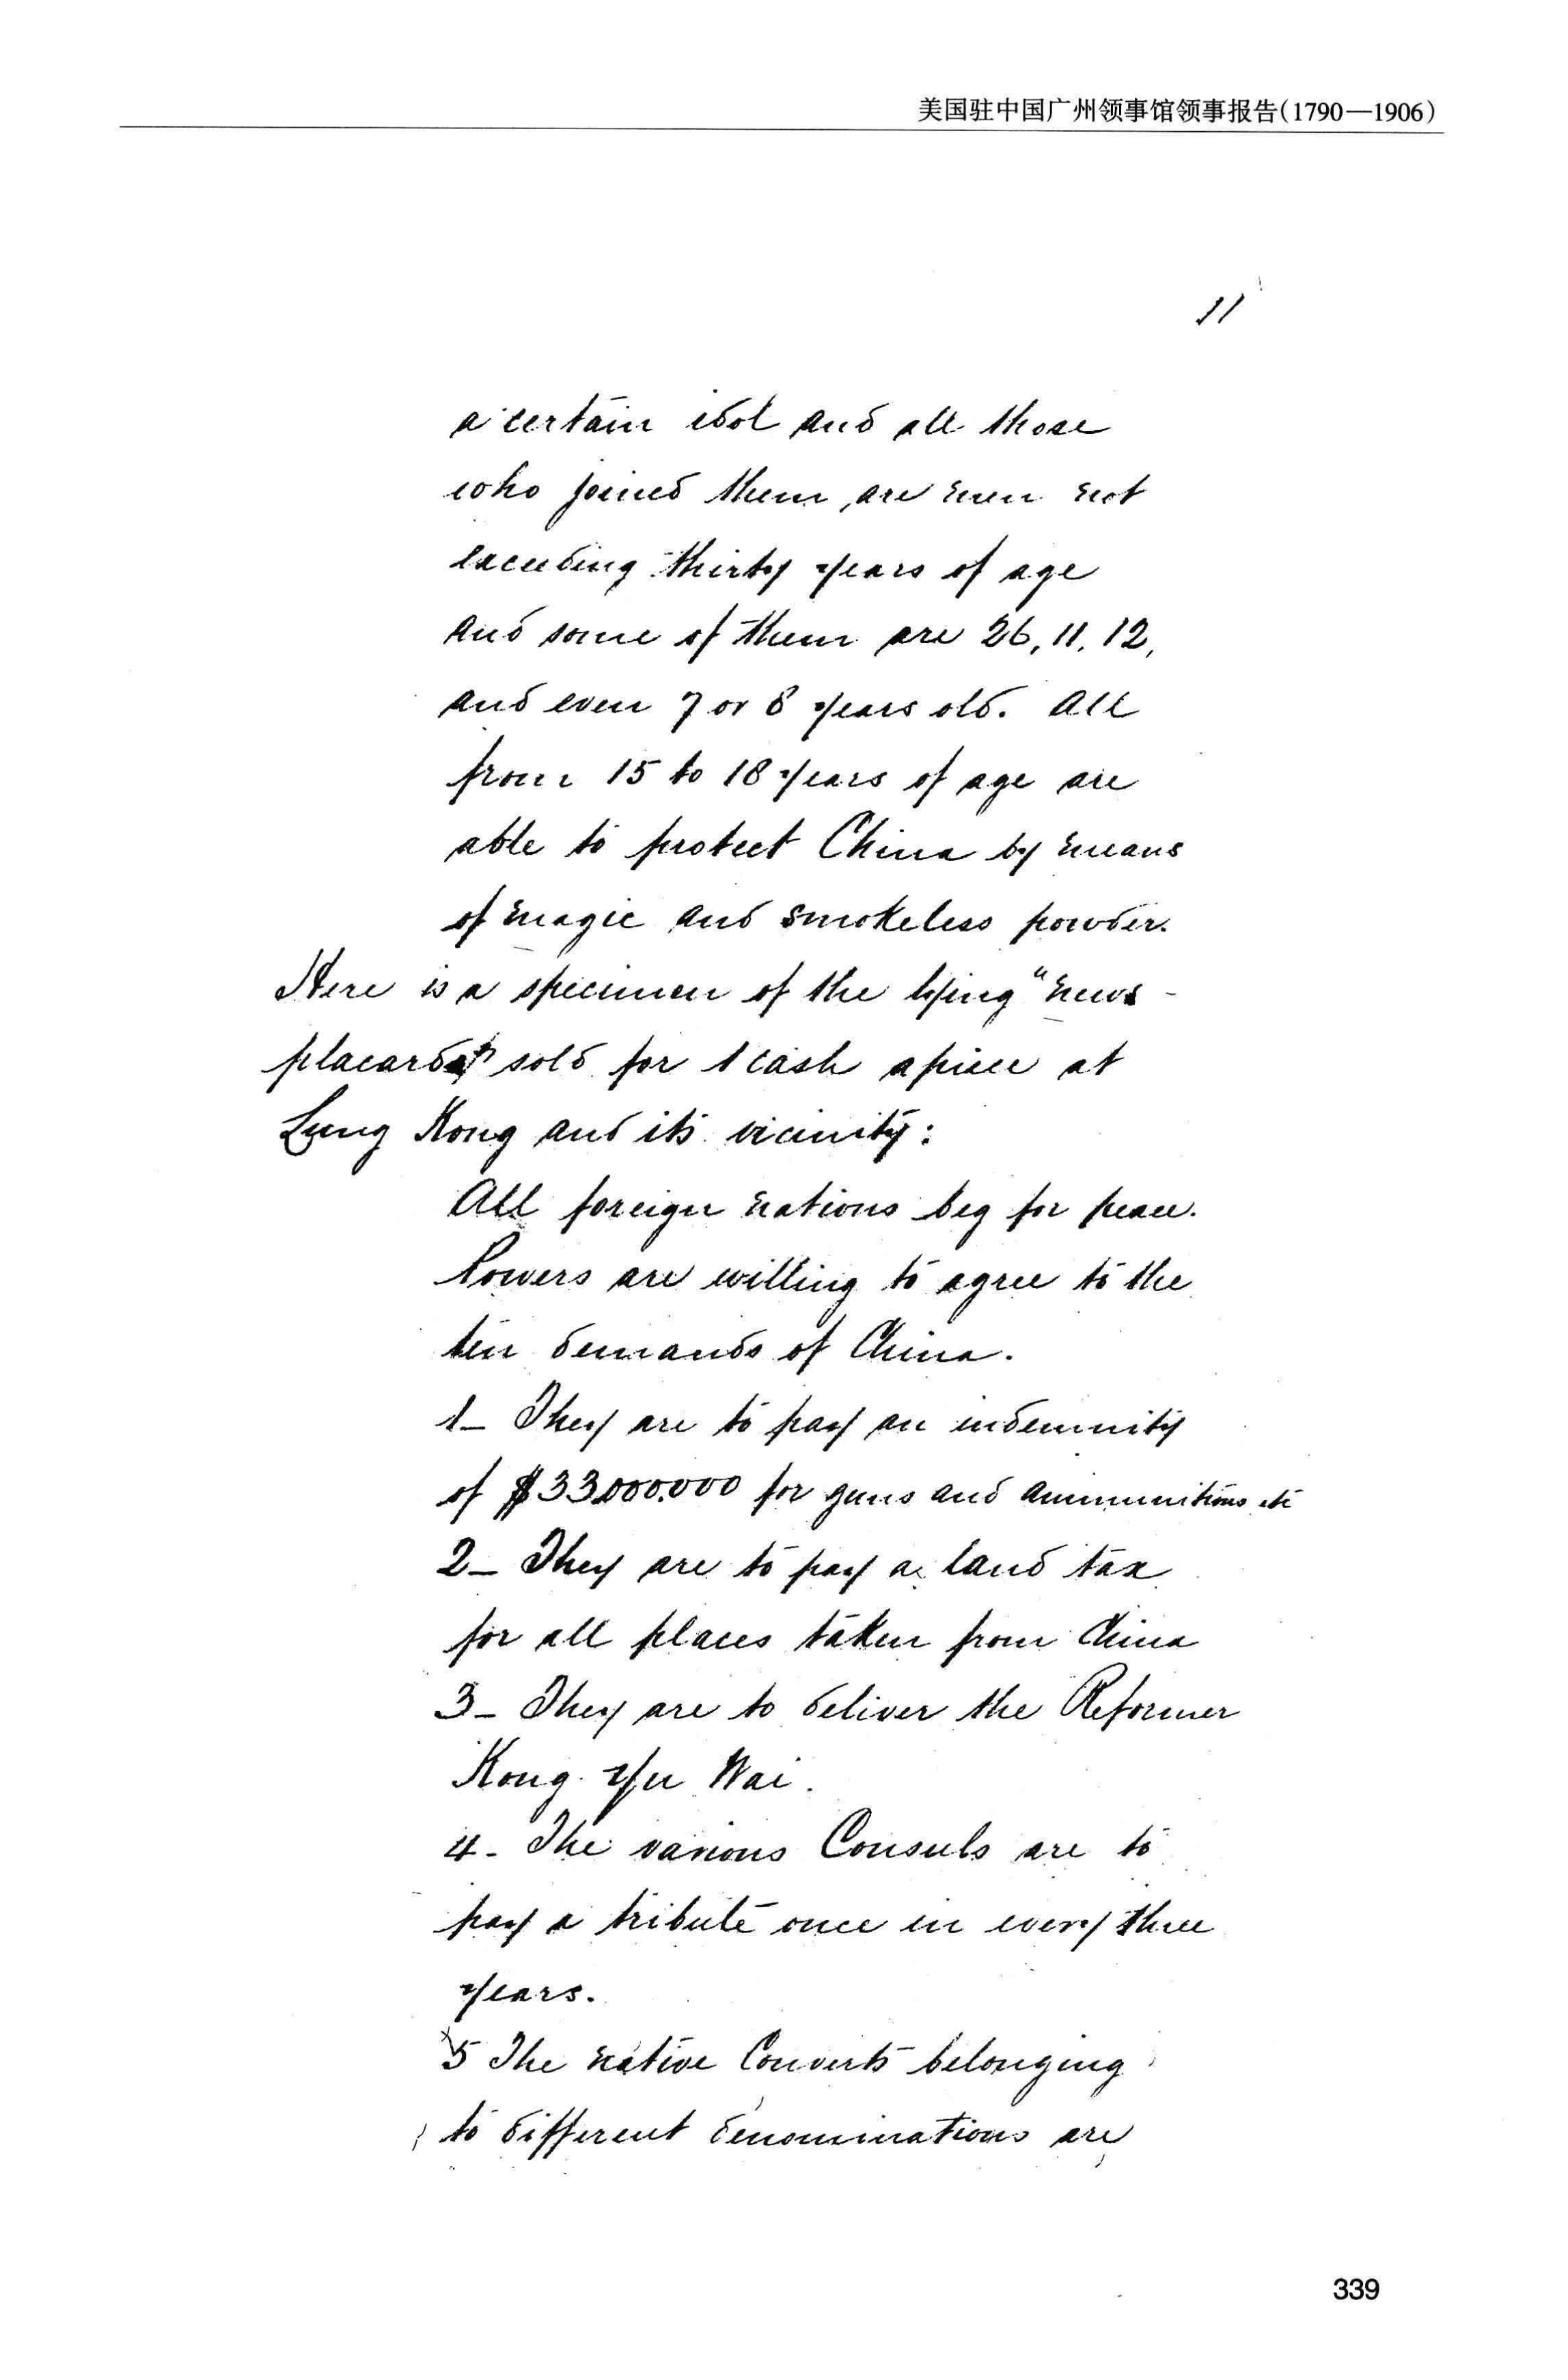 美国驻中国广州领事馆领事报告(1790—1906)
11
a certain idol and all those
who joined them, are men not
exceeding thirty years of age
and some of them are 26, 11, 12,
and even 7 or 8 years old. All
from 15 to 18 years of age are
able to protect China by means
of magic and smokeless powder.
Here is a specimen of the lying "news-
placards" sold for 1 cash apiece at
Lung Kong and its vicinity:
All foreign nations beg for peace.
Powers are willing to agree to the
ten demands of China.
1– They are to pay an indemnity
of $33,000.000 for guns and ammunitions etc
2– They are to pay a land tax
for all places taken from China
3– They are to deliver the Reformer
Kong Yu Wai.
4– The various Consuls are to
pay a tribute once in every three
years.
5 The native Converts belonging
to different denominations are
339